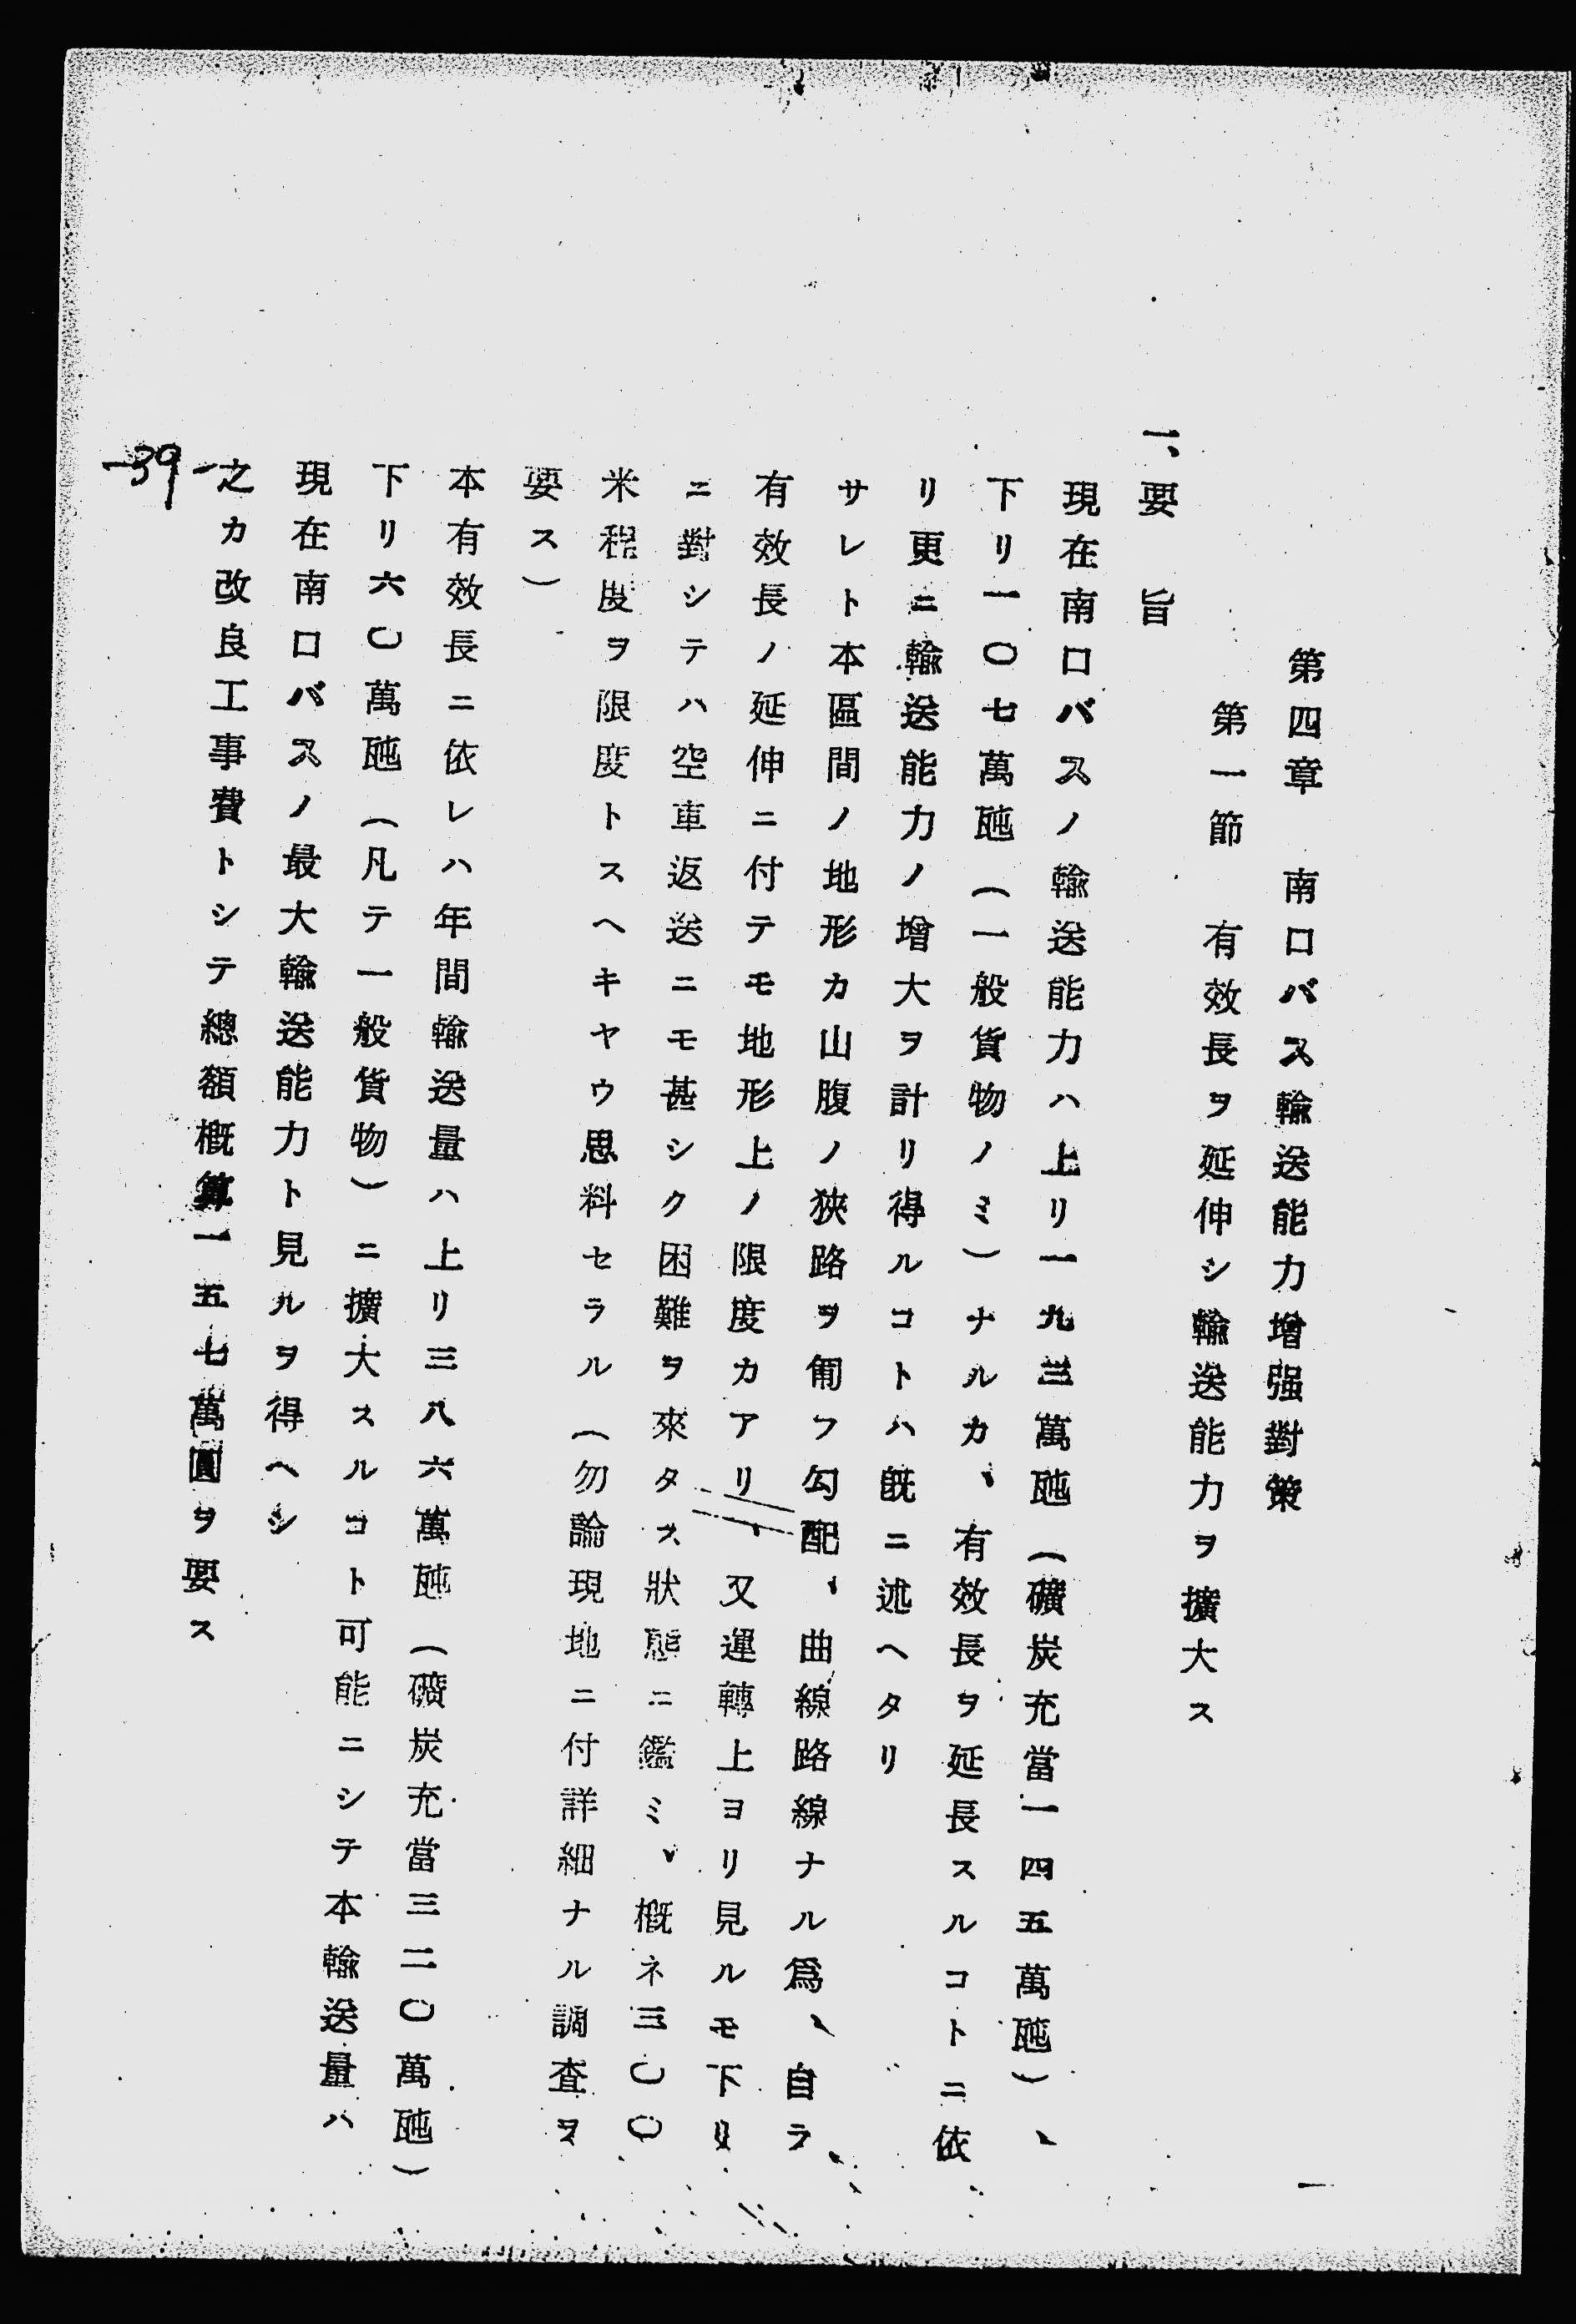 第四章　南口バス輸送能力增强對策
第一節　有效長ヲ延伸シ輸送能力ヲ擴大ス
一、要　旨
現在南口バスノ輸送能力ハ上リ一九三萬瓲（礦炭充當一四五萬瓲）、
下リ一〇七萬瓲（一般貨物ノミ）ナルカ、有效長ヲ延長スルコトニ依
リ更ニ輸送能力ノ增大ヲ計リ得ルコトハ既ニ述ヘタリ
サレト本區間ノ地形カ山腹ノ狹路ヲ匍フ勾配、曲線路線ナル爲、自ラ
有效長ノ延伸ニ付テモ地形上ノ限度カアリ、又運轉上ヨリ見ルモ下リ
ニ對シテハ空車返送ニモ甚シク困難ヲ來タス狀態ニ鑑ミ、概ネ三〇〇
米程度ヲ限度トスヘキヤウ思料セラル（勿論現地ニ付詳細ナル調査ヲ
要ス）
本有效長ニ依レハ年間輸送量ハ上リ三八六萬瓲（礦炭充當三二〇萬瓲）
下リ六〇萬瓲（凡テ一般貨物）ニ擴大スルコト可能ニシテ本輸送量ハ
現在南口バスノ最大輸送能力ト見ルヲ得ヘシ
之カ改良工事費トシテ總額概算一五七萬圓ヲ要ス
-39-